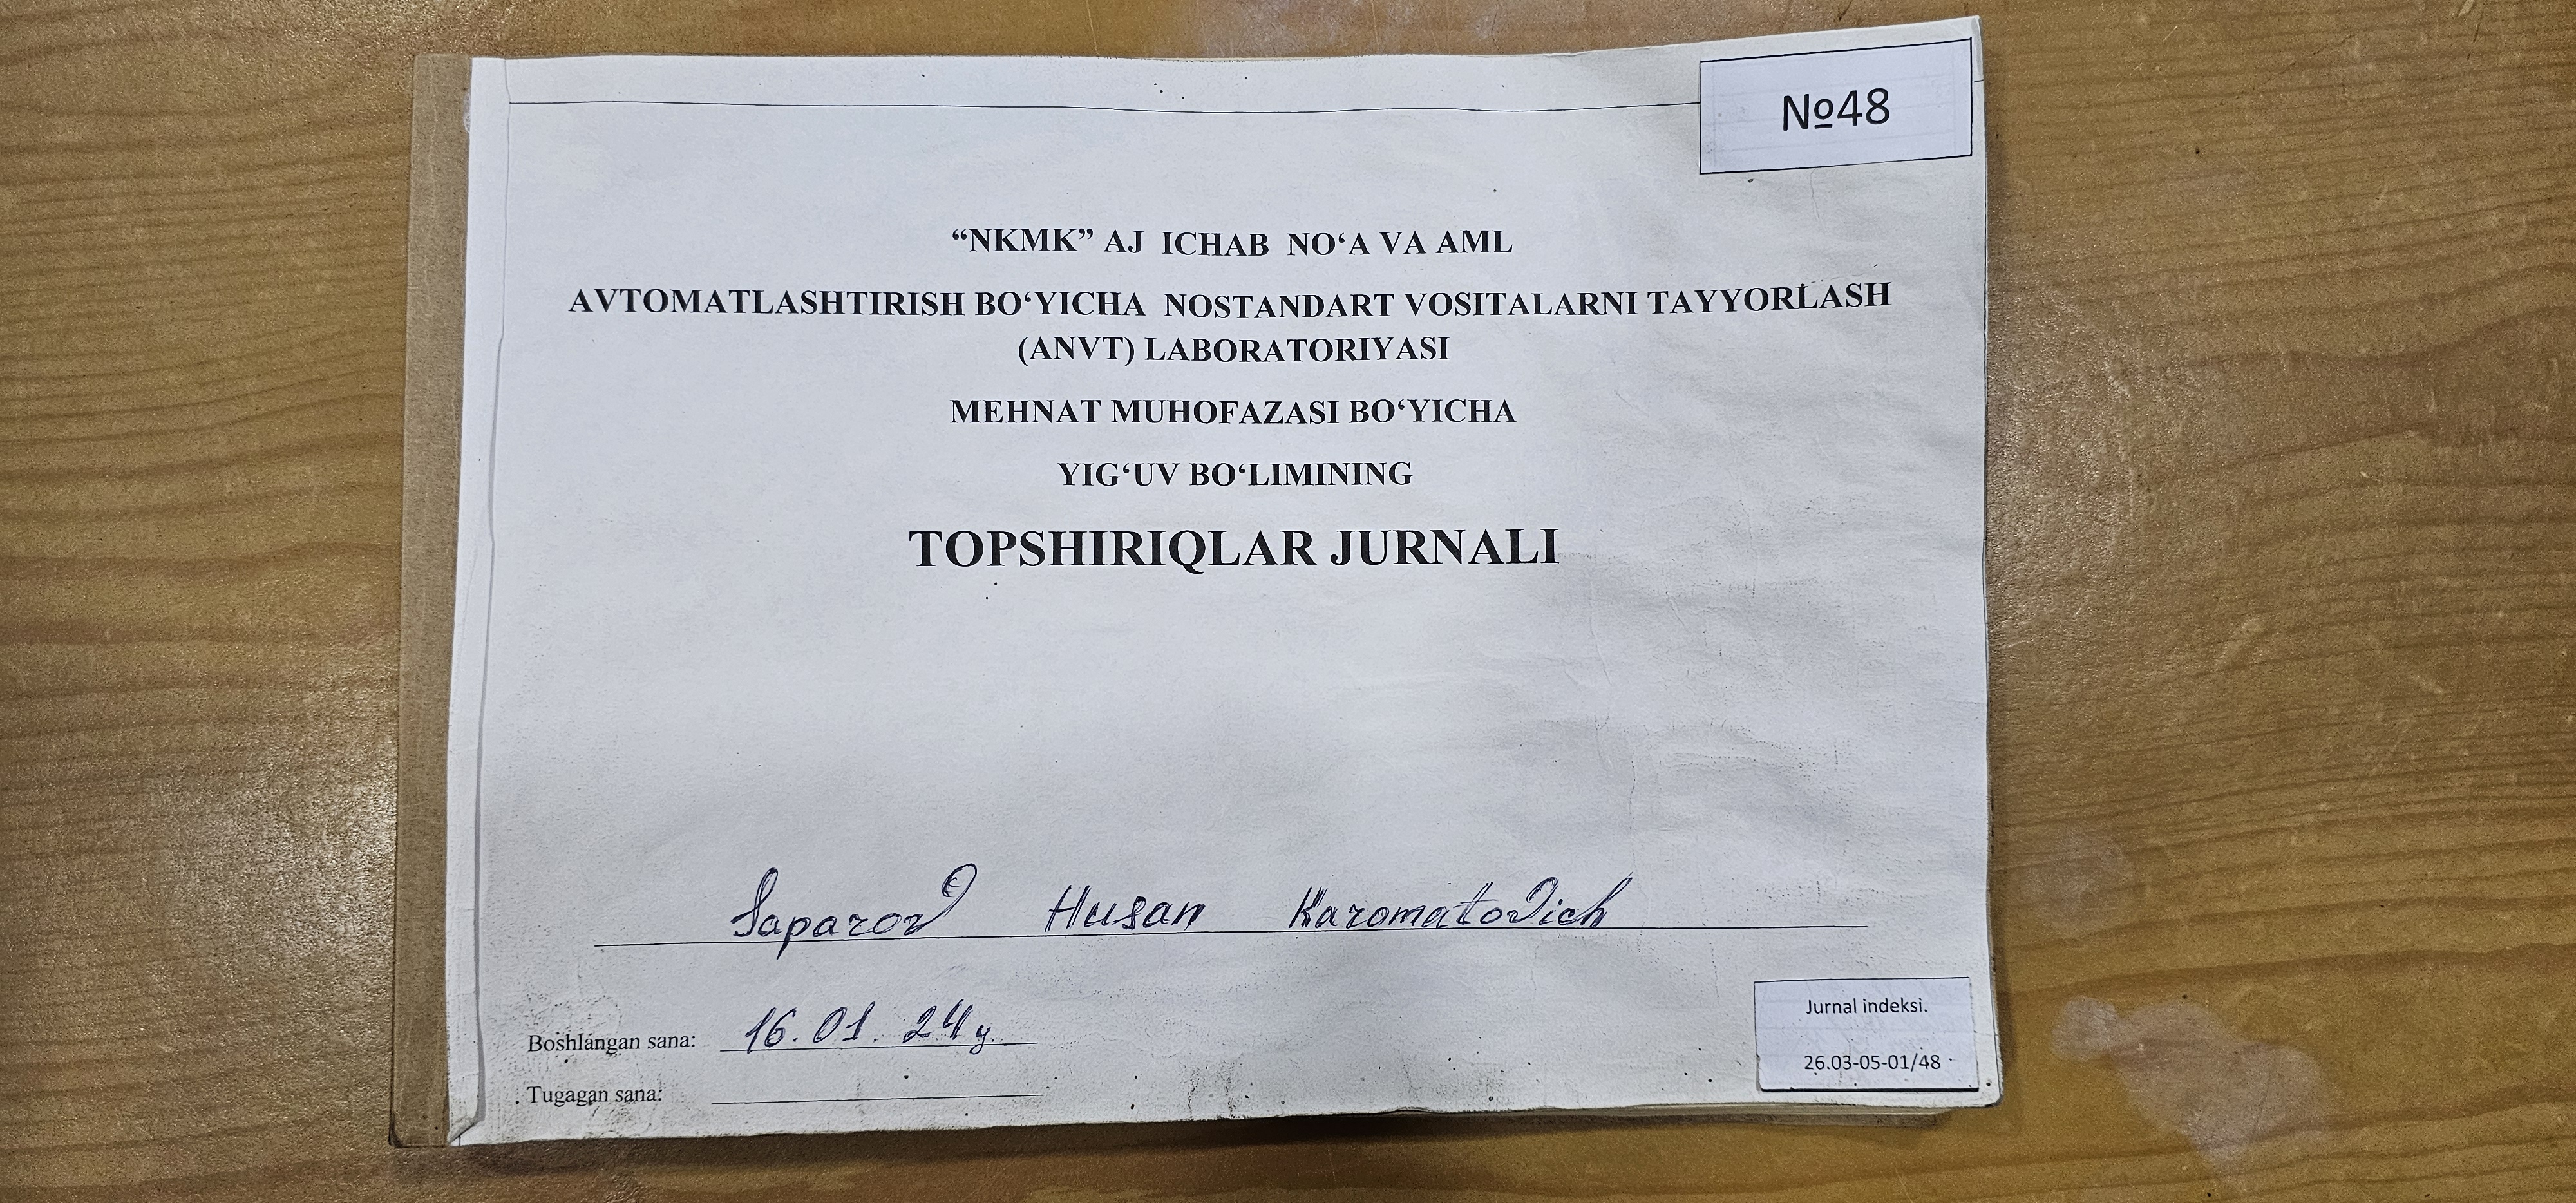 №48
“NKMK” AJ ICHAB NO‘A VA AML
AVTOMATLASHTIRISH BO‘YICHA NOSTANDART VOSITALARNI TAYYORLASH
(ANVT) LABORATORIYASI
MEHNAT MUHOFAZASI BO‘YICHA
YIG‘UV BO‘LIMINING
TOPSHIRIQLAR JURNALI
Saparov Husan Karomatovich
Boshlangan sana: 16.01.24 y.
Tugagan sana:
Jurnal indeksi.
26.03-05-01/48